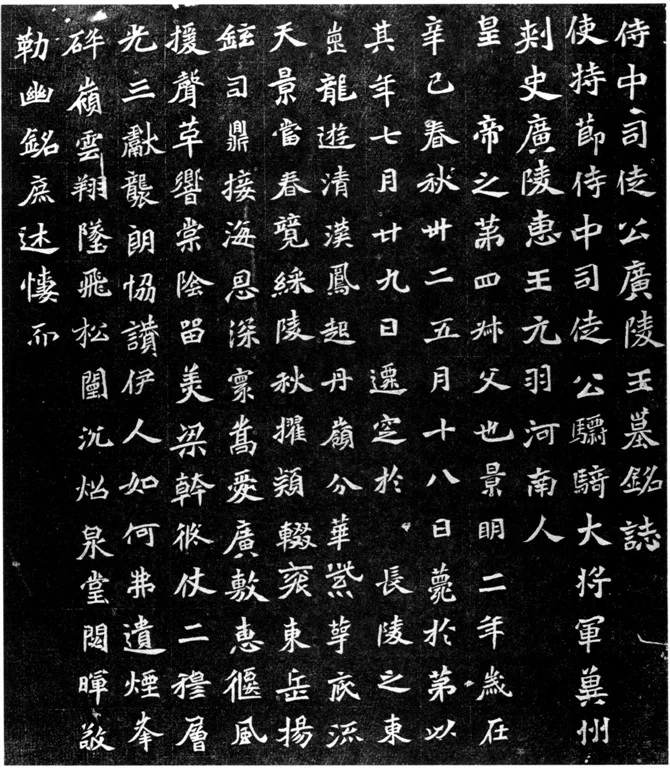 侍中司徒公廣陵王墓銘誌
使持節侍中司徒公驃騎大將軍冀州
刺史廣陵惠王元羽河南人
皇帝之第四叔父也景明二年歲在
辛巳春秋卅二五月十八日薨於第以
其年七月廿九日遷窆於長陵之東
崗龍遊清漢鳳起丹嶺分華紫萼底流
天景當春競綵陵秋擢穎輟袞東岳揚
鉉司鼎接海恩深寰嵩愛廣敷惠偃風
援聲革響棠陰留美梁幹俄仗二穆層
光三獻襲朗協讚伊人如何弗遺煙峯
碎嶺雲翔墜飛松闈沉焰泉堂闋暉敬
勒幽銘庶述悽而